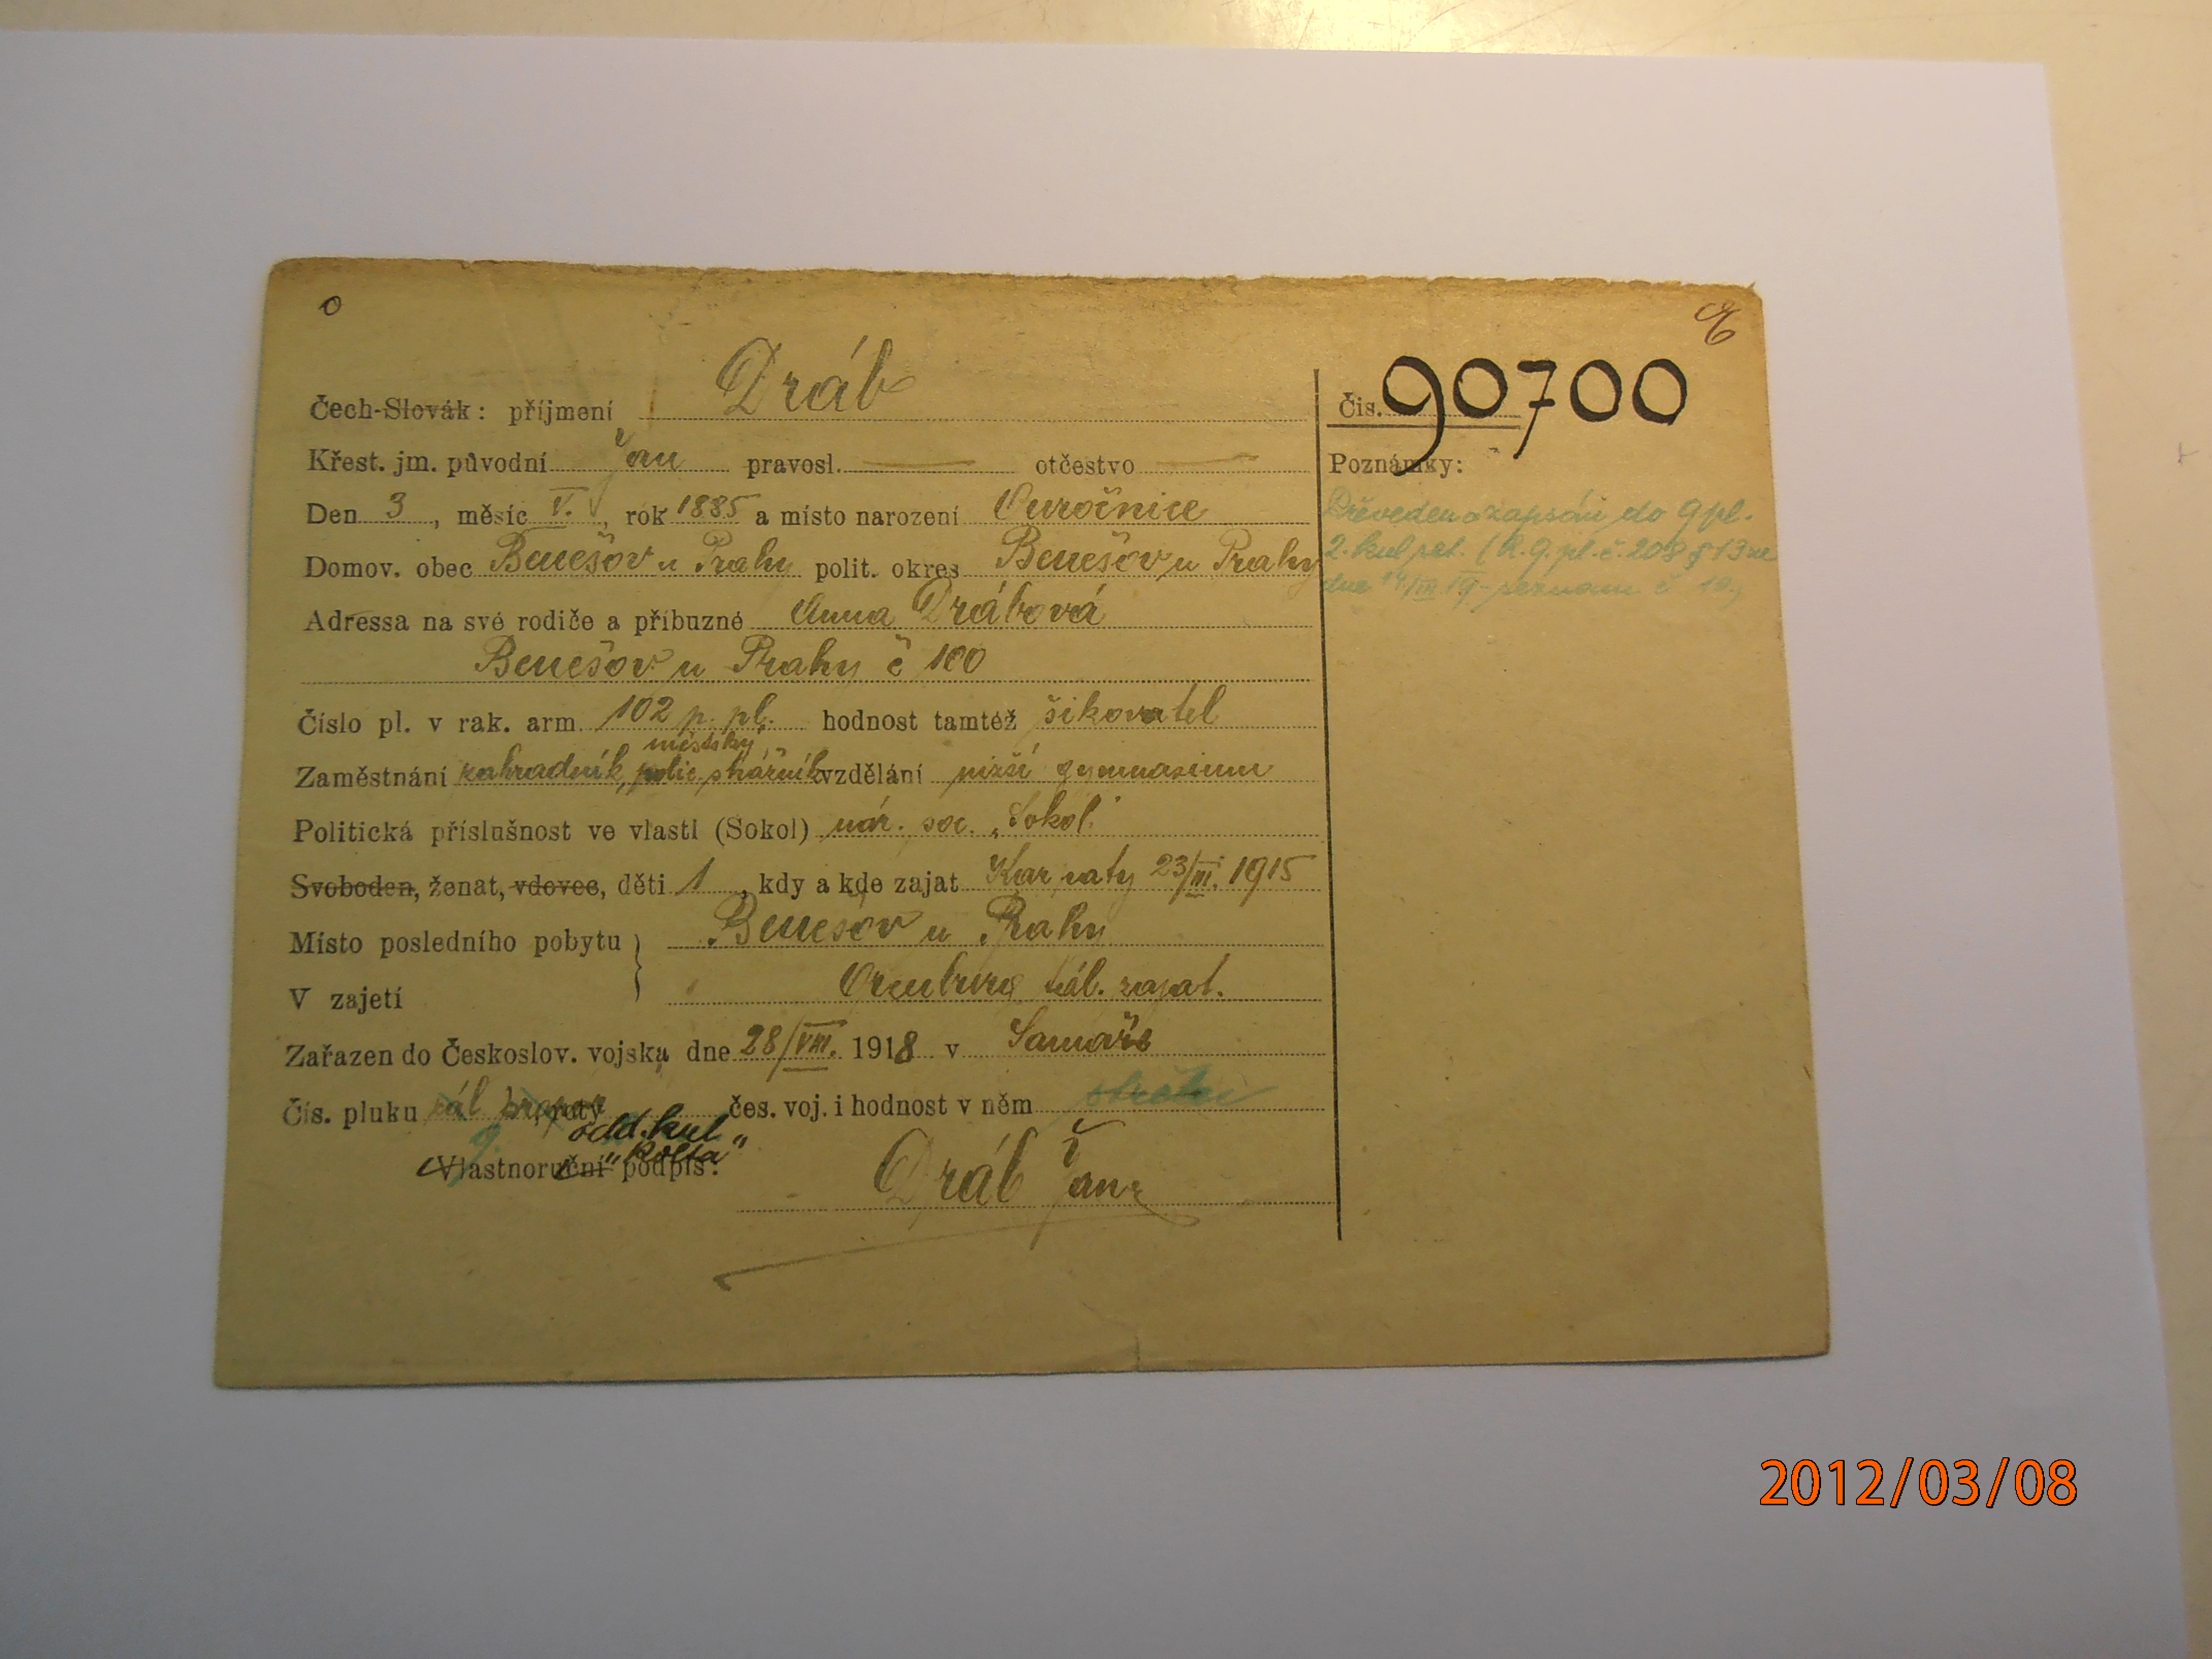 Čech-Slovák: příjmení Dráb
Čís. 90700
Křest. jm. původní Jan pravosl. — otčestvo —
Poznámky:
Den 3, měsíc V., rok 1885 a místo narození
Převeden a zapsán do 9 pl.
Domov. obec Benešov u Prahy polit. okres Benešov u Prahy
2. kul. (R. 9. pl. č. 208 § 13 ze
dne 14/III 19 - seznam č
Adressa na své rodiče a příbuzné Anna Drábová
Benešov u Prahy č 100
Číslo pl. v rak. arm. 102 p. pl. hodnost tamtéž šikovatel
městský
Zaměstnání zahradník, polic. strážník vzdělání nižší gymnasium
Politická příslušnost ve vlasti (Sokol) nár. soc. „Sokol"
Svoboden, ženat, vdovec, děti 1, kdy a kde zajat Karpaty 23/III. 1915
Místo posledního pobytu } Benešov u Prahy
V zajetí Orenburg táb. zajat.
Zařazen do Českoslov. vojska dne 28/VIII. 1918 v Samaře
Čís. pluku zál prapor, roty čes. voj. i hodnost v něm střelec
9. odd. kul
„Kolta"
Vlastnoruční podpis:
Dráb Jan
2012/03/08